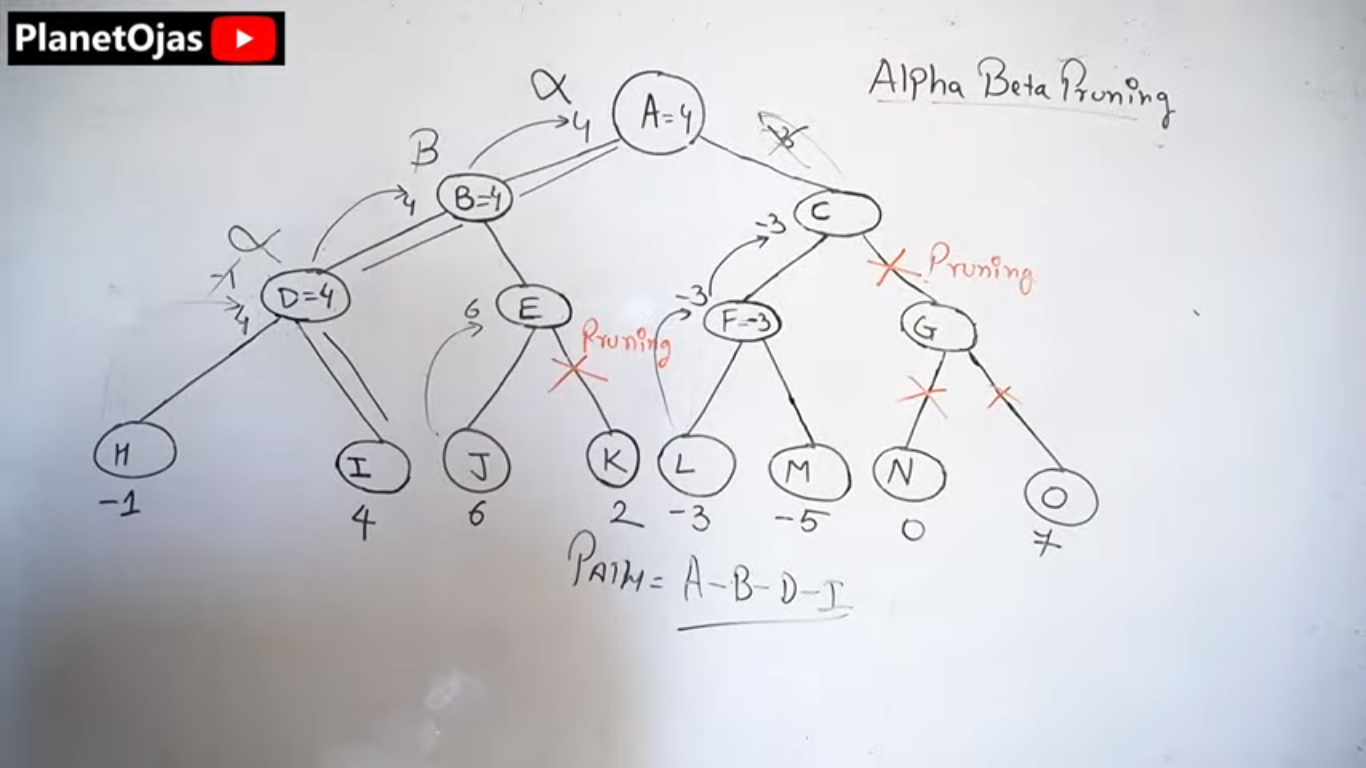 PlanetOjas
Alpha Beta Pruning
α
4
A=4
-3
B
4
B=4
C
-3
α
-1
4
D=4
6
E
Pruning
-3
F=-3
Pruning
G
H
I
J
K
L
M
N
O
-1
4
6
2
-3
-5
0
7
PATH= A-B-D-I